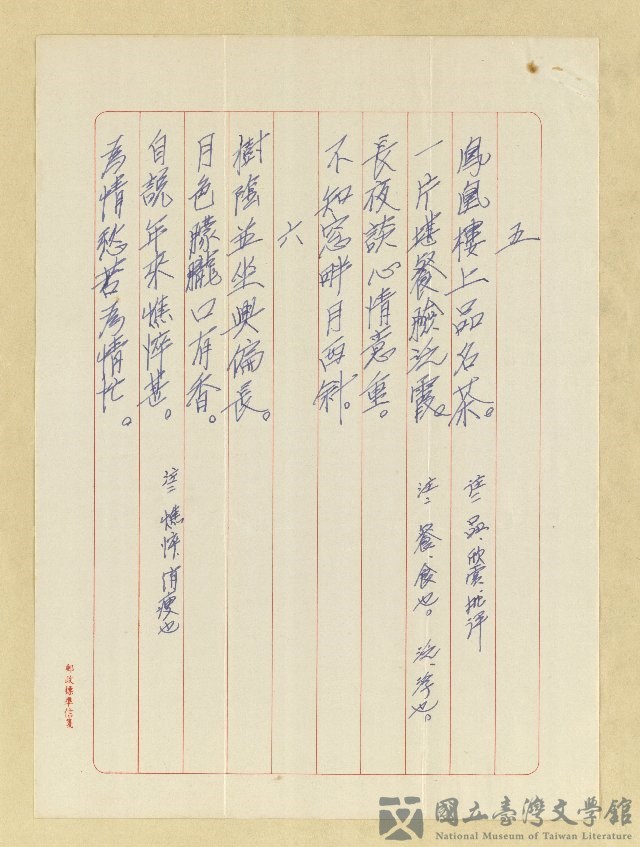 五
鳳凰樓上品名茶。 註：品、欣賞、批評
一片堪餐臉泛霞。 注：餐、食也。 泛、浮也。
長夜談心情意重。
不知窓畔月西斜。
六
樹蔭並坐興偏長。
月色朦朧口有香。
自說年來憔悴甚。 註：憔悴、消瘦也
為情愁苦為情忙。
郵政標準信箋
國立臺灣文學館
National Museum of Taiwan Literature